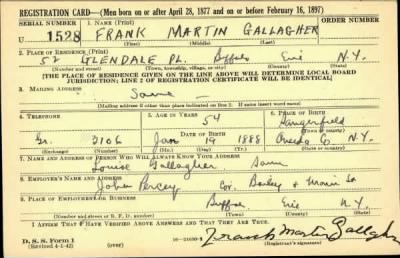 REGISTRATION CARD—(Men born on or after April 28, 1877 and on or before February 16, 1897)
SERIAL NUMBER 1. NAME (Print)
U 1528 FRANK MARTIN GALLAGHER
(First) (Middle) (Last)
2. PLACE OF RESIDENCE (Print)
52 GLENDALE PL. Buffalo Erie N.Y.
(Number and street) (Town, township, village, or city) (County) (State)
[THE PLACE OF RESIDENCE GIVEN ON THE LINE ABOVE WILL DETERMINE LOCAL BOARD
JURISDICTION; LINE 2 OF REGISTRATION CERTIFICATE WILL BE IDENTICAL]
3. MAILING ADDRESS
Same —
[Mailing address if other than place indicated on line 2. If same insert word same]
4. TELEPHONE 5. AGE IN YEARS 6. PLACE OF BIRTH
54
DATE OF BIRTH
Gr. 3106 Jan 19 1888 N.Y.
(Exchange) (Number) (Mo.) (Day) (Yr.) (State or country)
7. NAME AND ADDRESS OF PERSON WHO WILL ALWAYS KNOW YOUR ADDRESS
Louise Gallagher Same
8. EMPLOYER'S NAME AND ADDRESS
John Cor. Bailey &
9. PLACE OF EMPLOYMENT OR BUSINESS
Buffalo Erie N.Y.
(Number and street or R. F. D. number) (Town) (County) (State)
I AFFIRM THAT I HAVE VERIFIED ABOVE ANSWERS AND THAT THEY ARE TRUE.
D. S. S. Form 1
(Revised 4-1-42) (over) Frank Martin Gallagher